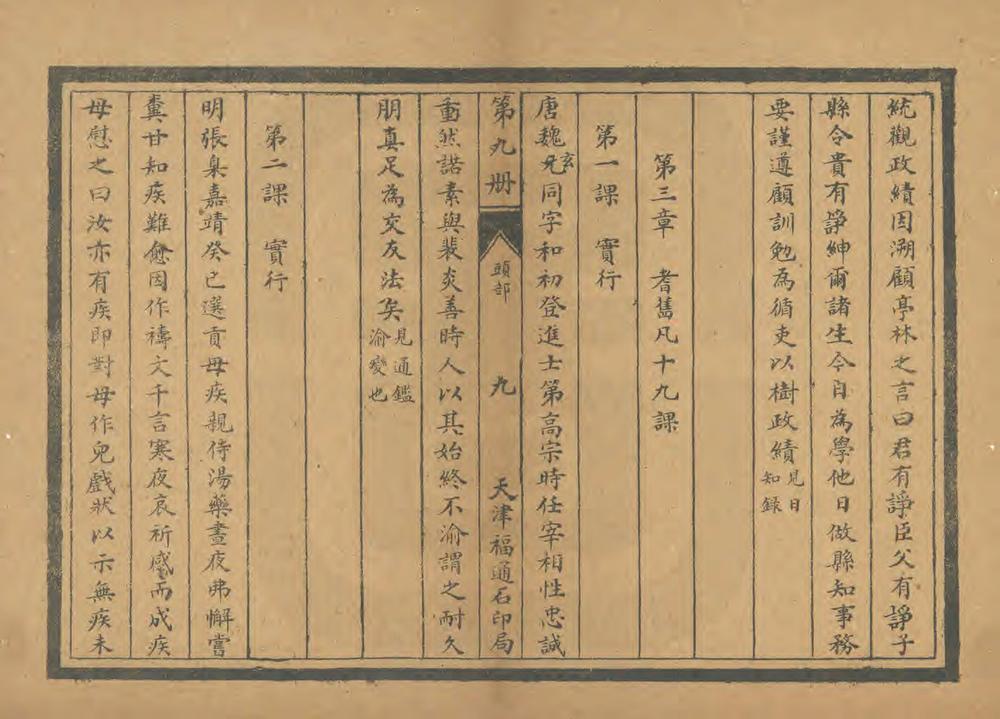 統觀政績因溯顧亭林之言曰君有諍臣父有諍子
縣令貴有諍紳爾諸生今日為學他日做縣知事務
要謹遵顧訓勉為循吏以樹政績見日知錄
第三章 耆舊凡十九課
第一課 實行
唐魏玄同字和初登進士第高宗時任宰相性忠誠
第九册 頭部 九 天津福通石印局
重然諾素與裴炎善時人以其始終不渝謂之耐久
朋真足為交友法矣見通鑑渝變也
第二課 實行
明張臬嘉靖癸巳選貢母疾親侍湯藥晝夜弗懈嘗
糞甘知疾難愈因作禱文千言寒夜哀祈感而成疾
母慰之曰汝亦有疾即對母作兒戲狀以示無疾未